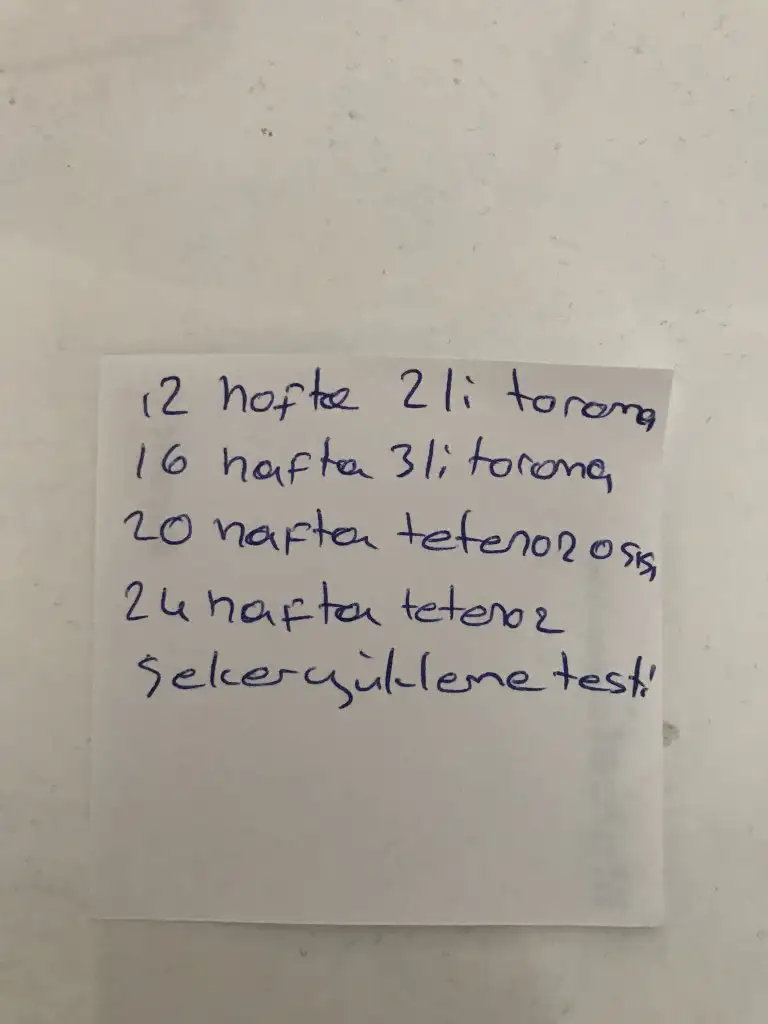 12 hafta 2li tarama
16 hafta 3li tarama
20 hafta tetenoz aşısı
24 hafta tetenoz
şekeryükleme testi